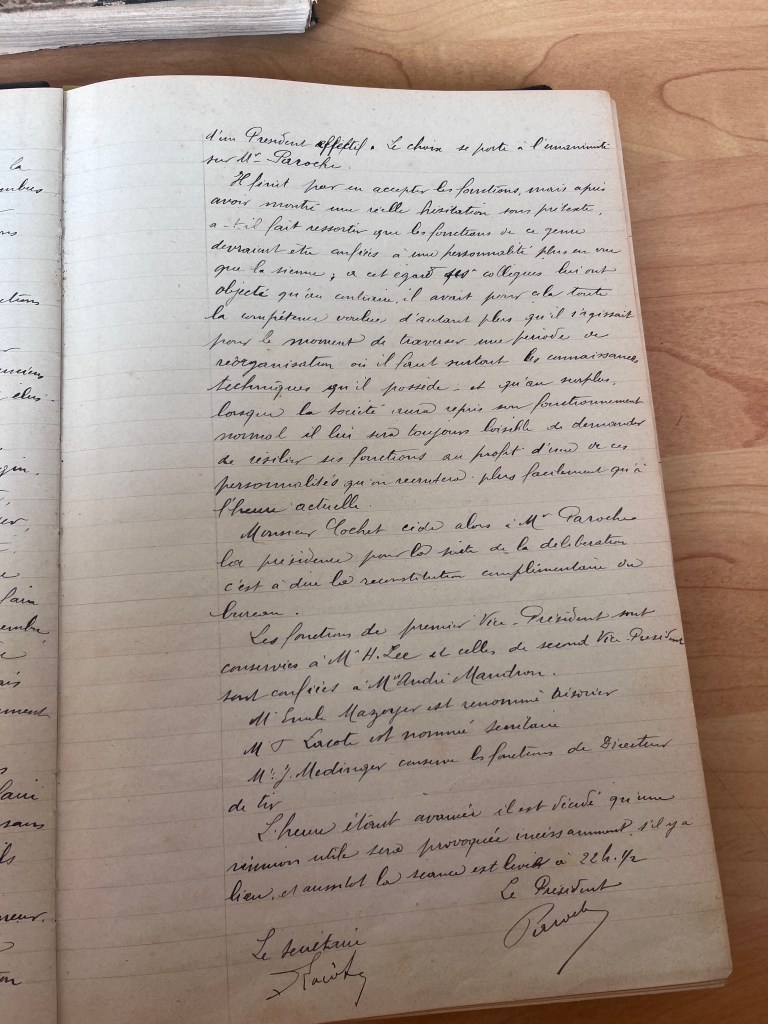 la
d'un Président effectif. Le choix se porte à l'unanimité
sur Mr Paroche.
Il finit par en accepter les fonctions, mais après
avoir montré une réelle hésitation sous prétexte,
a-t-il fait ressortir que les fonctions de ce genre
devraient être confiées à une personnalité plus en vue
que la sienne ; à cet égard ses collègues lui ont
objecté qu'au contraire, il avait pour cela toute
la compétence voulue d'autant plus qu'il s'agissait
pour le moment de traverser une période de
réorganisation où il faut surtout les connaissances
techniques qu'il possède - et qu'au surplus,
lorsque la société aura repris son fonctionnement
normal il lui sera toujours loisible de demander
de résilier ses fonctions au profit d'une de ces
personnalités qu'on recrutera plus facilement qu'à
l'heure actuelle.
Monsieur Cochet cède alors à Mr Paroche
la présidence pour la suite de la délibération
c'est à dire la reconstitution complémentaire du
bureau.
Les fonctions de premier Vice-Président sont
conservées à Mr H. Lee et celles de second Vice-Président
sont confiées à Mr André Mandron.
Mr Emile Mazoyer est renommé trésorier
Mr J Lacote est nommé secrétaire
Mr J. Medinger conserve les fonctions de Directeur
de tir
L'heure étant avancée il est décidé qu'une
réunion utile sera provoquée incessamment, s'il y a
lieu, et aussitôt la séance est levée à 22h. 1/2
Le Président
Paroche
Le secrétaire
JLacote